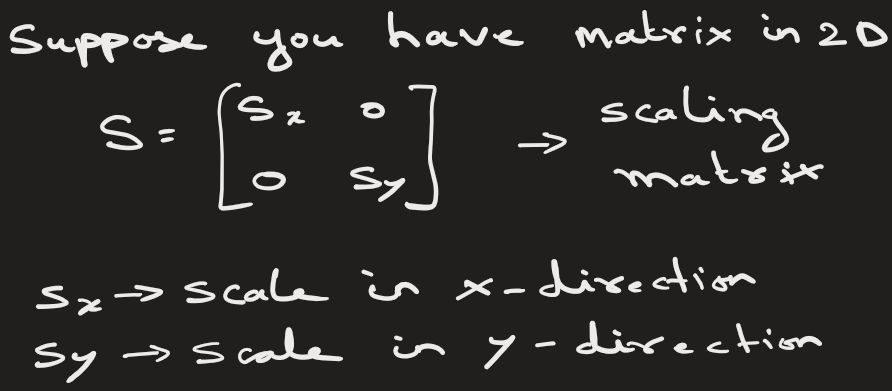 Suppose you have matrix in 2D
S = [ Sx 0 → scaling
0 Sy ] matrix
Sx → scale in x-direction
Sy → scale in y-direction